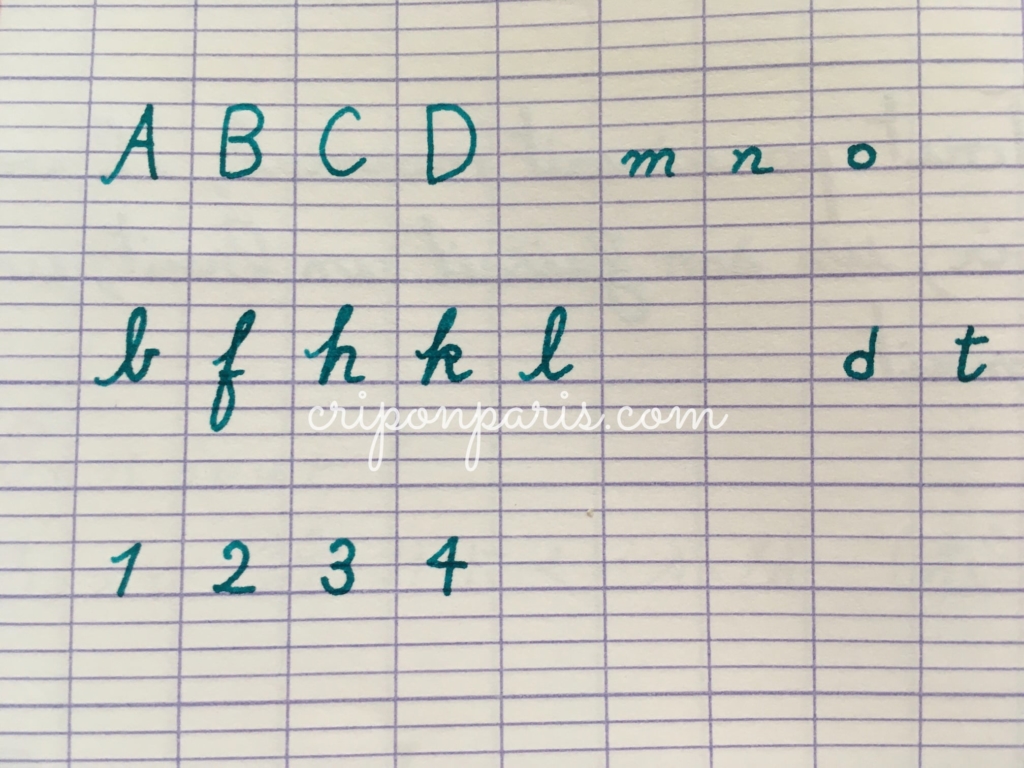 A B C D m n o
b f h k l d t
criponparis.com
1 2 3 4